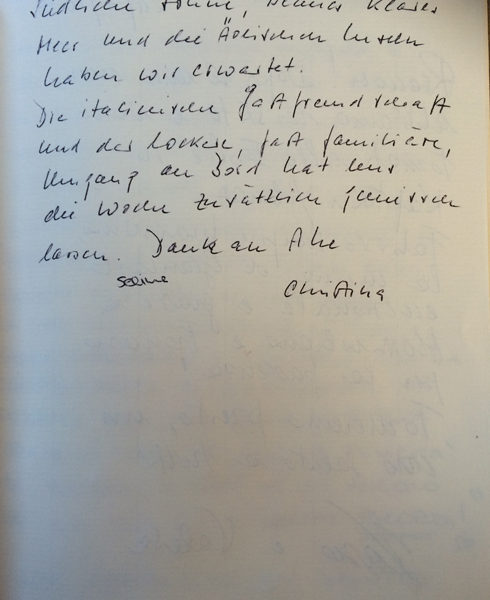 südliche Sonne, blaues klares
Meer und die Äolischen Inseln
haben wir erwartet.
Die italienischen Gastfreundschaft
und der lockere, fast familiäre,
Umgang an Bord hat uns
die Woche zusätzlich geniessen
lassen. Dank an Alle
Christina